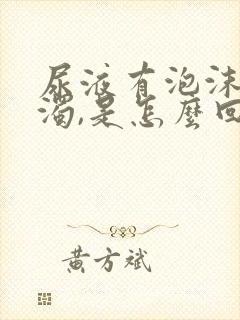 尿液有泡沫
濁,是怎麼回
黃方斌